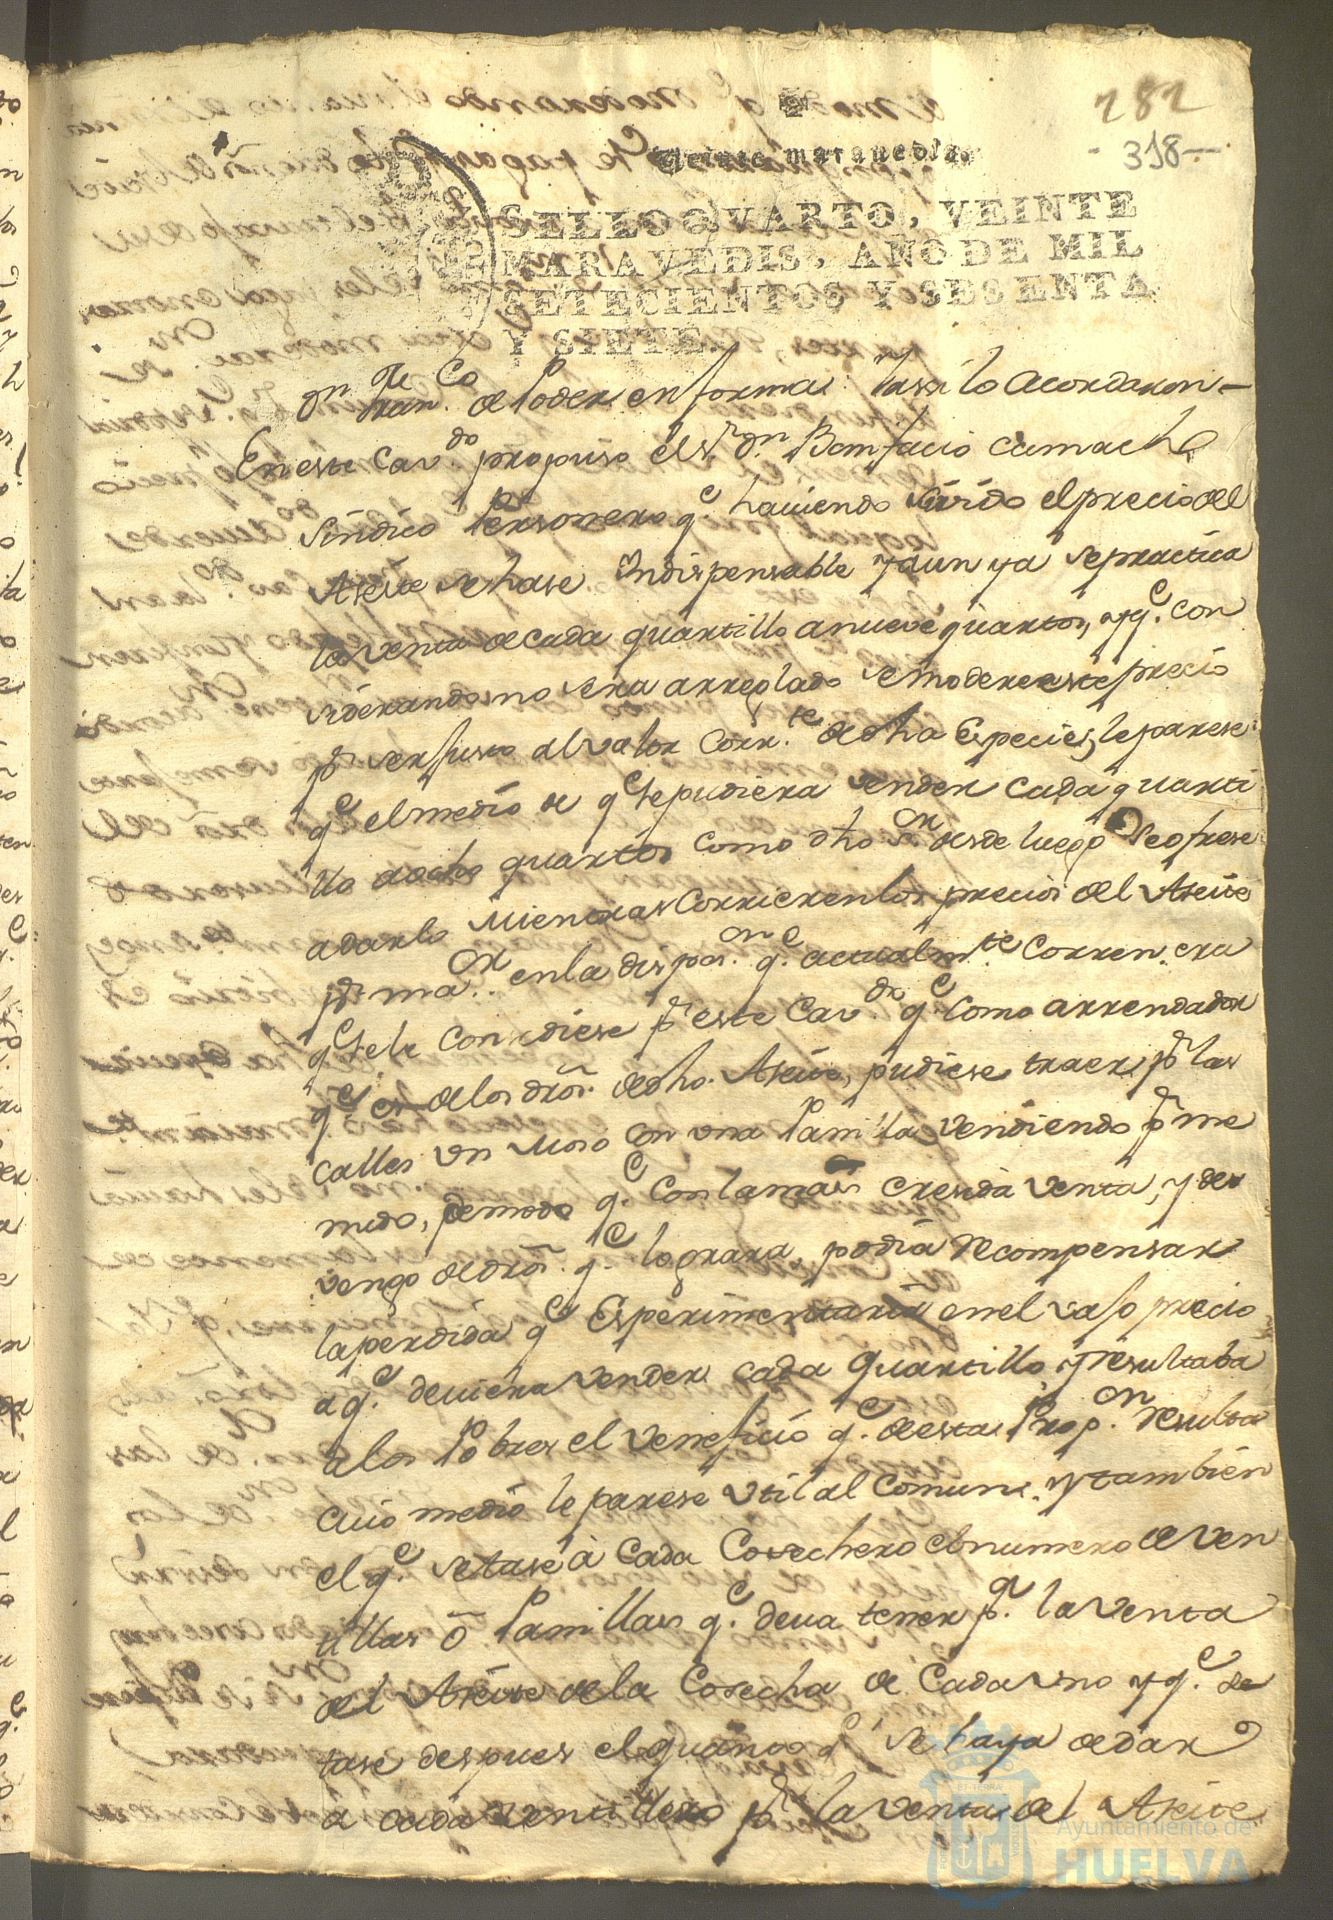 282
- 318 -
Veinte maravedis.
SELLO QVARTO, VEINTE
MARAVEDIS, AÑO DE MIL
SETECIENTOS Y SESENTA
Y SIETE.
Dn Franco. de Poder en forma: Yassi lo acordaron -
En este Cavdo. propuso el Sr. Dn. Bonifacio Camacho
Sindico Personero qe. haviendo suvido el precio del
Aseite se hase Indispensable y aun ya se practica
la venta de cada quartillo a nueve quartos, y qe. con
siderando no sera arreglado se modere este precio
pr ser justo al valor corrte. de dha Especie, le parese
qe el medio de qe se pudiera vender cada quarti
llo a ocho quartos como dho Sr. desde luego se ofrese
a darlo Mientras corrieren los precios del Aseite
pr maor. en la dispon. qe. actualmte. corren, era
qe se le condiese pr este Cavdo. qe como arrendador
qe es de los dros. de dho. Aseite, pudiese traer pr las
calles un Moso con una Panilla vendiendo pr me
nudo, de modo qe. con la mas cresida venta, y de
vengo de dros. qe lograra, podia recompensar
la perdida qe Esperimentaria en el vajo precio
a qe. deviera vender cada quartillo, y resultaba
a los Pobres el veneficio qe. de esta Propon. resulta
cuio medio le parese util al Comun. y tambien
el qe. se tase à cada Cosechero el numero de ven
tillas ô Panillas qe. deva tener pa. la venta
del Aseite de la Cosecha de Cada uno y qe. se
tase despues el quanto qe se haya de dar
a cada ventillero pr la venta del Aseite
Ayuntamiento de
HUELVA